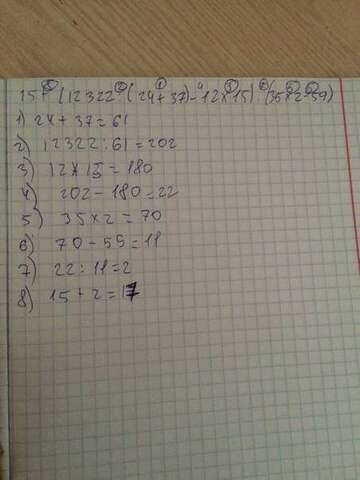 15 + (12322 : (24 + 37) - 12 × 15) : (35 × 2 - 59)
1) 24 + 37 = 61
2) 12322 : 61 = 202
3) 12 × 15 = 180
4) 202 - 180 = 22
5) 35 × 2 = 70
6) 70 - 59 = 11
7) 22 : 11 = 2
8) 15 + 2 = 17